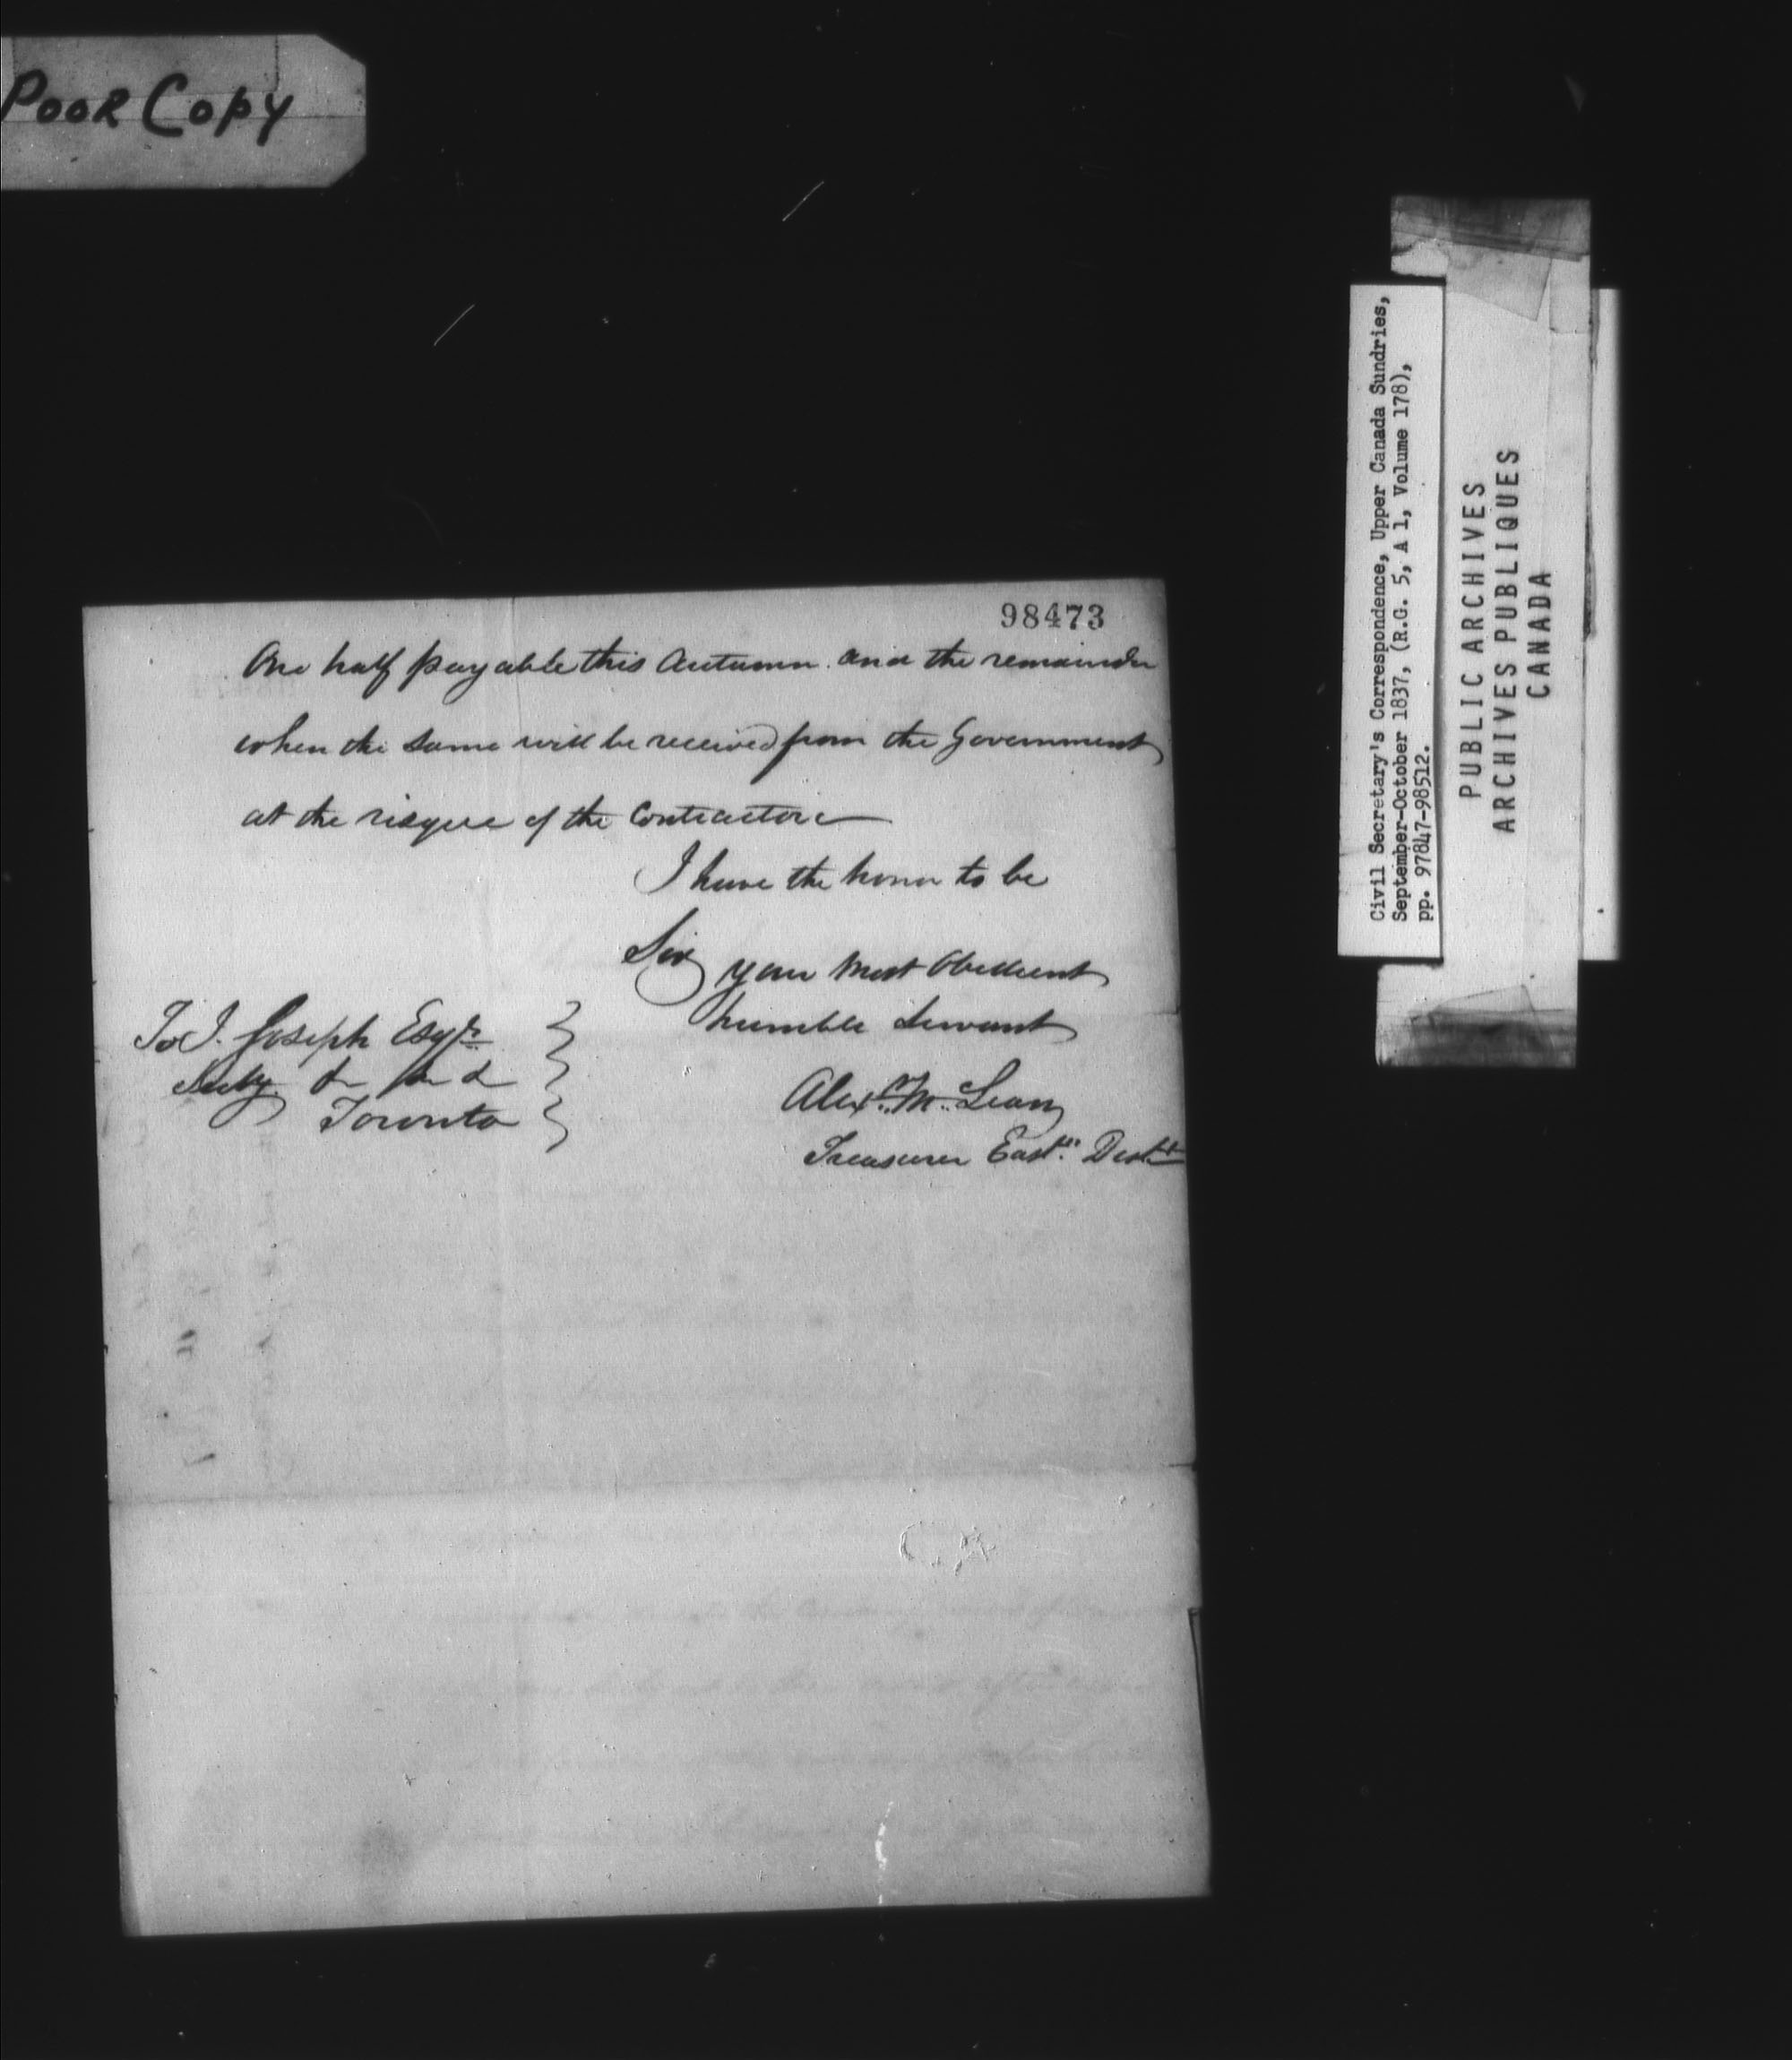 Poor Copy
98473
One half payable this Autumn and the remainder
when the same will be received from the Government
at the risque of the Contractors
I have the honor to be
Sir your most Obedient
humble Servant
Alexr. Mc.Lean
Treasurer Eastn. Distt
To J. Joseph Esqr.
Secty &c &c &c
Toronto
Civil Secretary's Correspondence, Upper Canada Sundries,
September-October 1837, (R.G. 5, A 1, Volume 178),
pp. 97847-98512.
PUBLIC ARCHIVES
ARCHIVES PUBLIQUES
CANADA